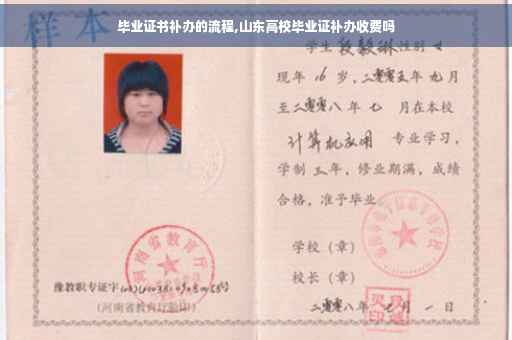 毕业证书补办的流程,山东高校毕业证补办收费吗
样本
学生段毅琳性别女
现年16岁,二零零五年九月
至二零零八年七月在本校
计算机应用 专业学习,
学制三年,修业期满,成绩
合格,准予毕业
学校(章)
校长(章)
二零零八年七月一日
河南省教育厅
豫教职专证字
(河南省教育厅验印)